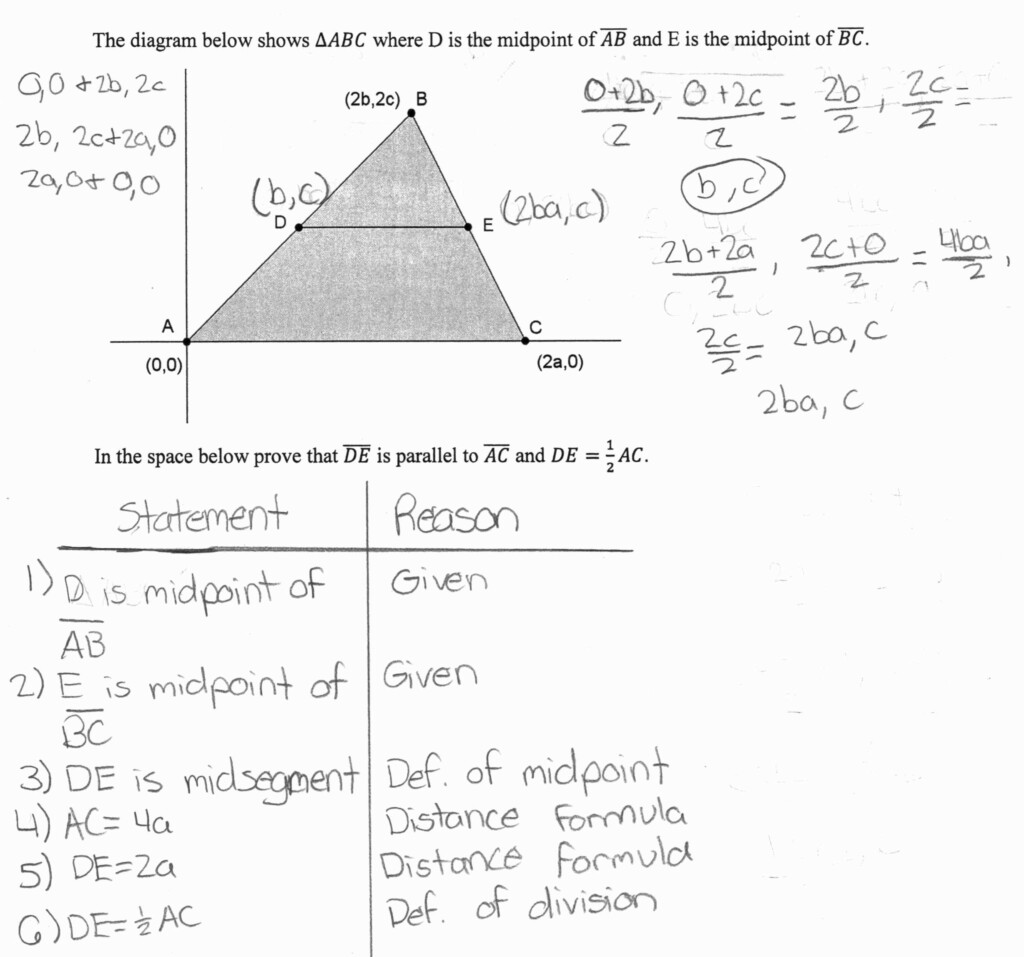 The diagram below shows ΔABC where D is the midpoint of A̅B̅ and E is the midpoint of B̅C̅.
0,0 + 2b, 2c
2b, 2c+2a,0
2a,0+ 0,0
(2b,2c) B
(b,c)
D
E (2ba, c)
A
C
(0,0)
(2a,0)
0+2b/2, 0+2c/2 = 2b/2, 2c/2 =
b, c
2b+2a/2, 2c+0/2 = 4ba/2,
2c/2 = 2ba, c
2ba, c
In the space below prove that D̅E̅ is parallel to A̅C̅ and DE = 1/2 AC.
Statement Reason
1) D is midpoint of Given
A̅B̅
2) E is midpoint of Given
B̅C̅
3) DE is midsegment Def. of midpoint
4) AC= 4a Distance formula
5) DE=2a Distance formula
6) DE=1/2 AC Def. of division